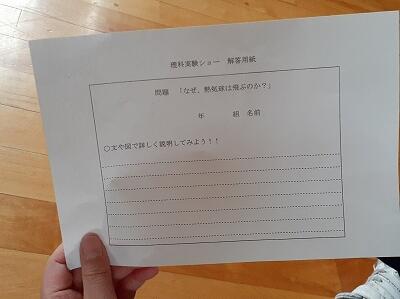 理科実験ショー 解答用紙
問題 「なぜ、熱気球は飛ぶのか?」
年 組 名前
○文や図で詳しく説明してみよう!!